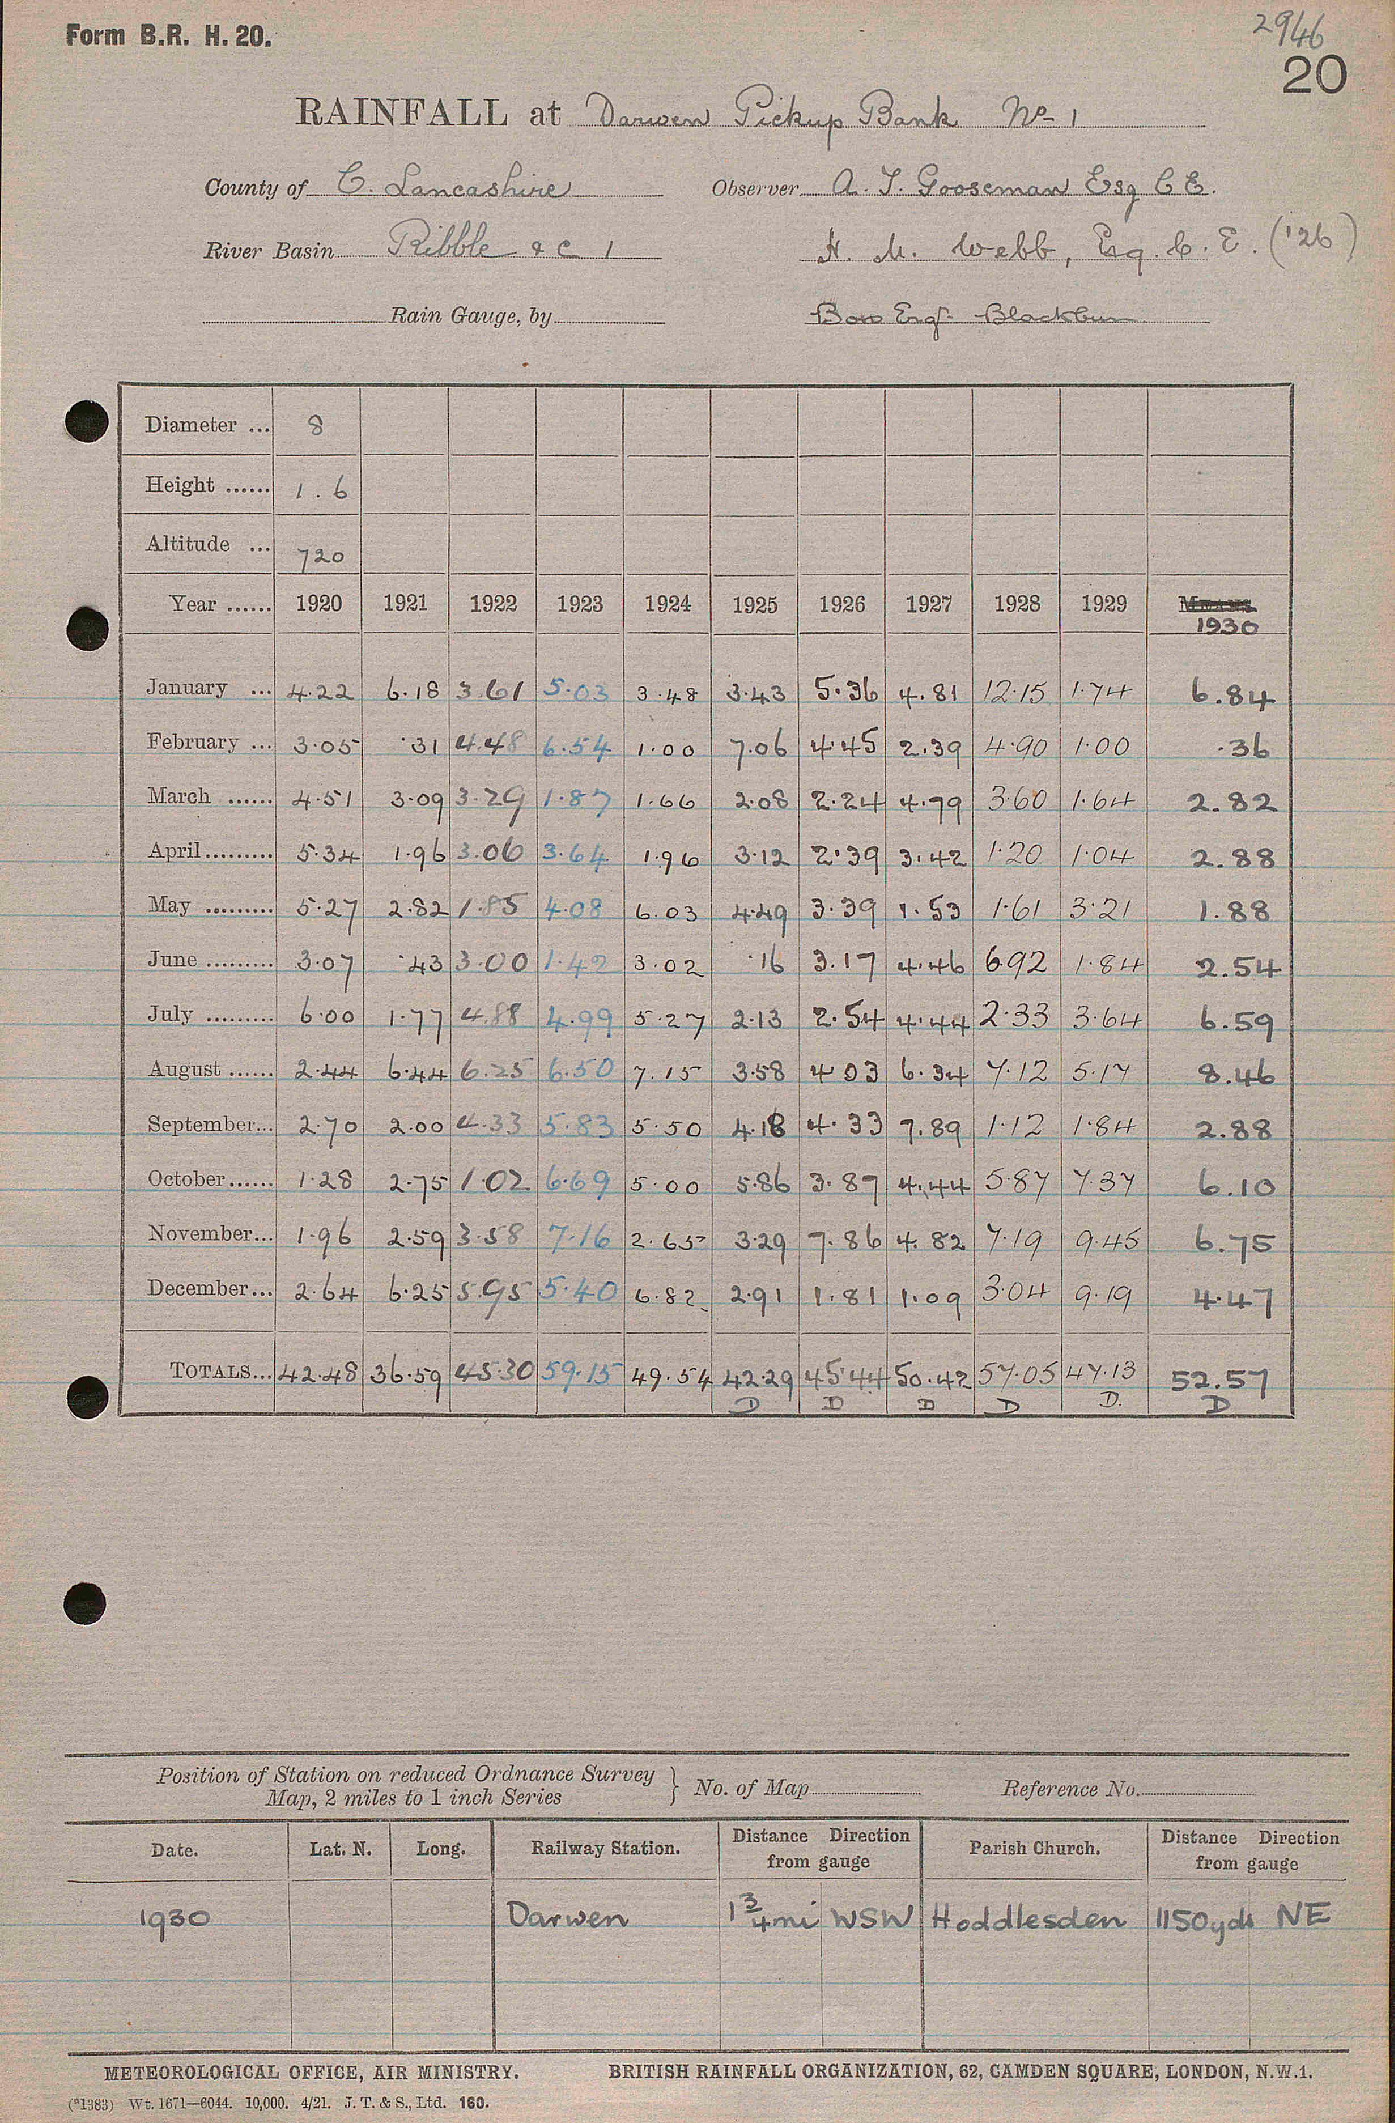 Form B.R. H. 20.
2946
20
RAINFALL at Darwen Pickup Bank No 1
County of C. Lancashire Observer A. T. Gooseman Esq C E.
River Basin Ribble & C 1 H. M. Webb, Esq. C. E. ('26)
Rain Gauge, by Boro Engr. Blackburn
Diameter ... 8
Height ...... 1.6
Altitude ... 720
Year ...... 1920 1921 1922 1923 1924 1925 1926 1927 1928 1929 1930
January ... 4.22 6.18 3.61 5.03 3.48 3.43 5.36 4.81 12.15 1.74 6.84
February ... 3.05 .31 4.48 6.54 1.00 7.06 4.45 2.39 4.90 1.00 .36
March ...... 4.51 3.09 3.29 1.87 1.66 2.08 2.24 4.79 3.60 1.64 2.82
April......... 5.34 1.96 3.06 3.64 1.96 3.12 2.39 3.42 1.20 1.04 2.88
May ......... 5.27 2.82 1.85 4.08 6.03 4.49 3.39 1.53 1.61 3.21 1.88
June ......... 3.07 .43 3.00 1.42 3.02 .16 3.17 4.46 6.92 1.84 2.54
July ......... 6.00 1.77 4.88 4.99 5.27 2.13 2.54 4.44 2.33 3.64 6.59
August ...... 2.44 6.44 6.25 6.50 7.15 3.58 4.03 6.34 7.12 5.17 8.46
September... 2.70 2.00 4.33 5.83 5.50 4.18 4.33 7.89 1.12 1.84 2.88
October...... 1.28 2.75 1.02 6.69 5.00 5.86 3.87 4.44 5.87 7.37 6.10
November... 1.96 2.59 3.58 7.16 2.65 3.29 7.86 4.82 7.19 9.45 6.75
December... 2.64 6.25 5.95 5.40 6.82 2.91 1.81 1.09 3.04 9.19 4.47
TOTALS... 42.48 36.59 45.30 59.15 49.54 42.29 45.44 50.42 57.05 47.13 52.57
D D D D D. D
Position of Station on reduced Ordnance Survey
Map, 2 miles to 1 inch Series } No. of Map Reference No.
Date. Lat. N. Long. Railway Station. Distance Direction from gauge Parish Church. Distance Direction from gauge
1930 Darwen 1 3/4 mi WSW Hoddlesden 1150 yds NE
METEOROLOGICAL OFFICE, AIR MINISTRY. BRITISH RAINFALL ORGANIZATION, 62, CAMDEN SQUARE, LONDON, N.W.1.
(*1383) Wt. 1671—6044. 10,000. 4/21. J. T. & S., Ltd. 160.